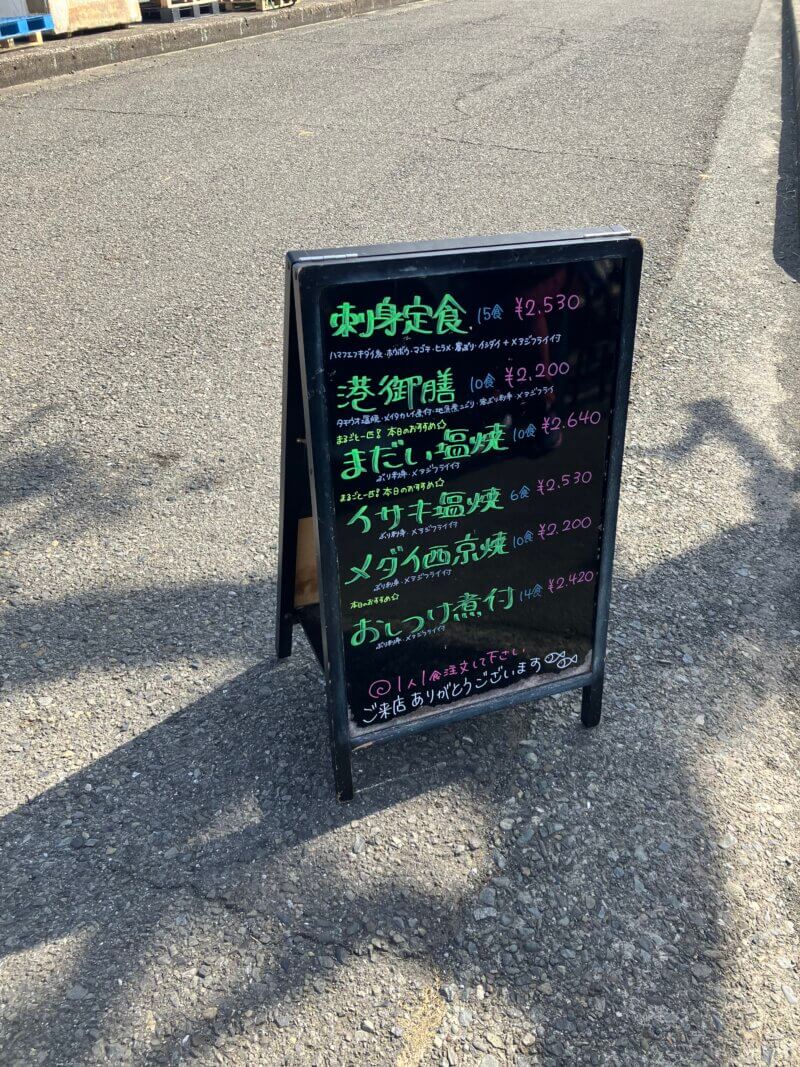 刺身定食 15食 ¥2,530
ハマフエフキダイ・ホウボウ・マゴチ・ヒラメ・・イシダイ + メアジフライ付
港御膳 10食 ¥2,200
タチウオ塩焼・メイタカレイ煮付・地魚煮こごり・メアジフライ
まるごと一匹! 本日のおすすめ☆
まだい塩焼 10食 ¥2,640
ぶり刺身・メアジフライ付
まるごと一匹! 本日のおすすめ☆
イサキ塩焼 6食 ¥2,530
ぶり刺身・メアジフライ付
メダイ西京焼 10食 ¥2,200
ぶり刺身・メアジフライ付
本日のおすすめ☆
おしつけ煮付 14食 ¥2,420
ぶり刺身・メアジフライ付
◎1人1食注文して下さい
ご来店ありがとうございます